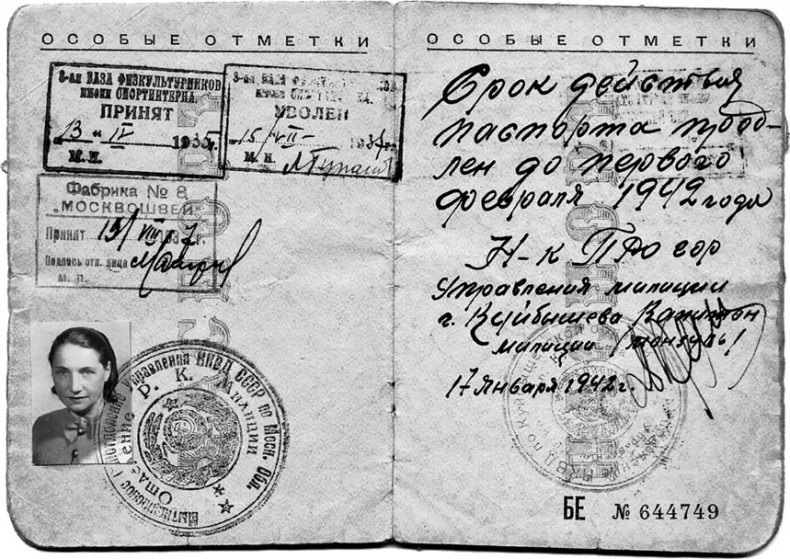 ОСОБЫЕ ОТМЕТКИ
3-ая БАЗА ФИЗКУЛЬТУРНИКОВ
имени СПОРТИНТЕРНА
ПРИНЯТ
13 " IV 1935 г.
М. П.
3-ая БАЗА
УВОЛЕН
15 VII 193
М. П.
Фабрика № 8
„МОСКВОШВЕЙ"
Принят 15/VIII 1937 г.
Подпись отв. лица
М. П.
Управления НКВД СССР по Моск. Обл.
Р. К. Милиции
Отделение
ОСОБЫЕ ОТМЕТКИ
Срок действия
паспорта прод-
лен до первого
февраля 1942 года
Н-к ПРО гор
Управления милиции
г. Куйбышева Капитан
милиции
17 Января 1942 г.
БЕ № 644749